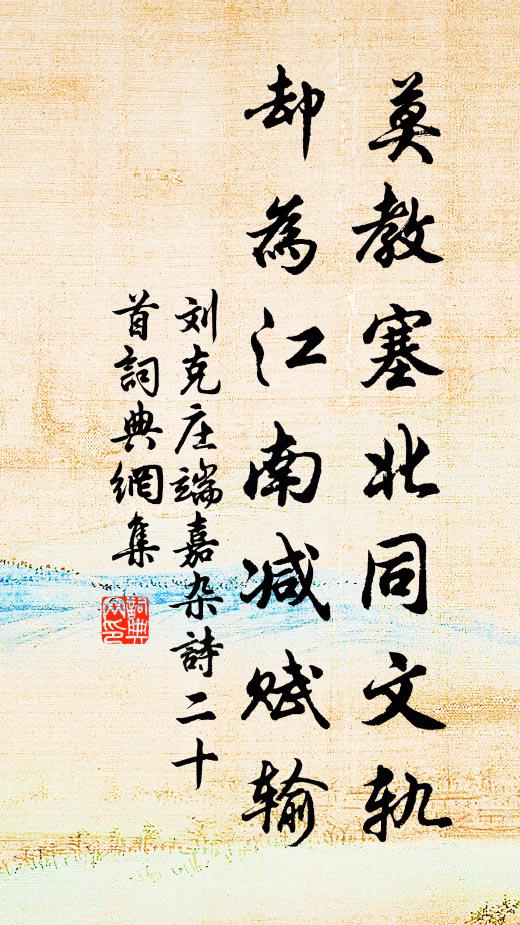 莫教塞北同文轨
却為江南减赋输
刘克庄端嘉杂詩二十
首詞典網集
詞典